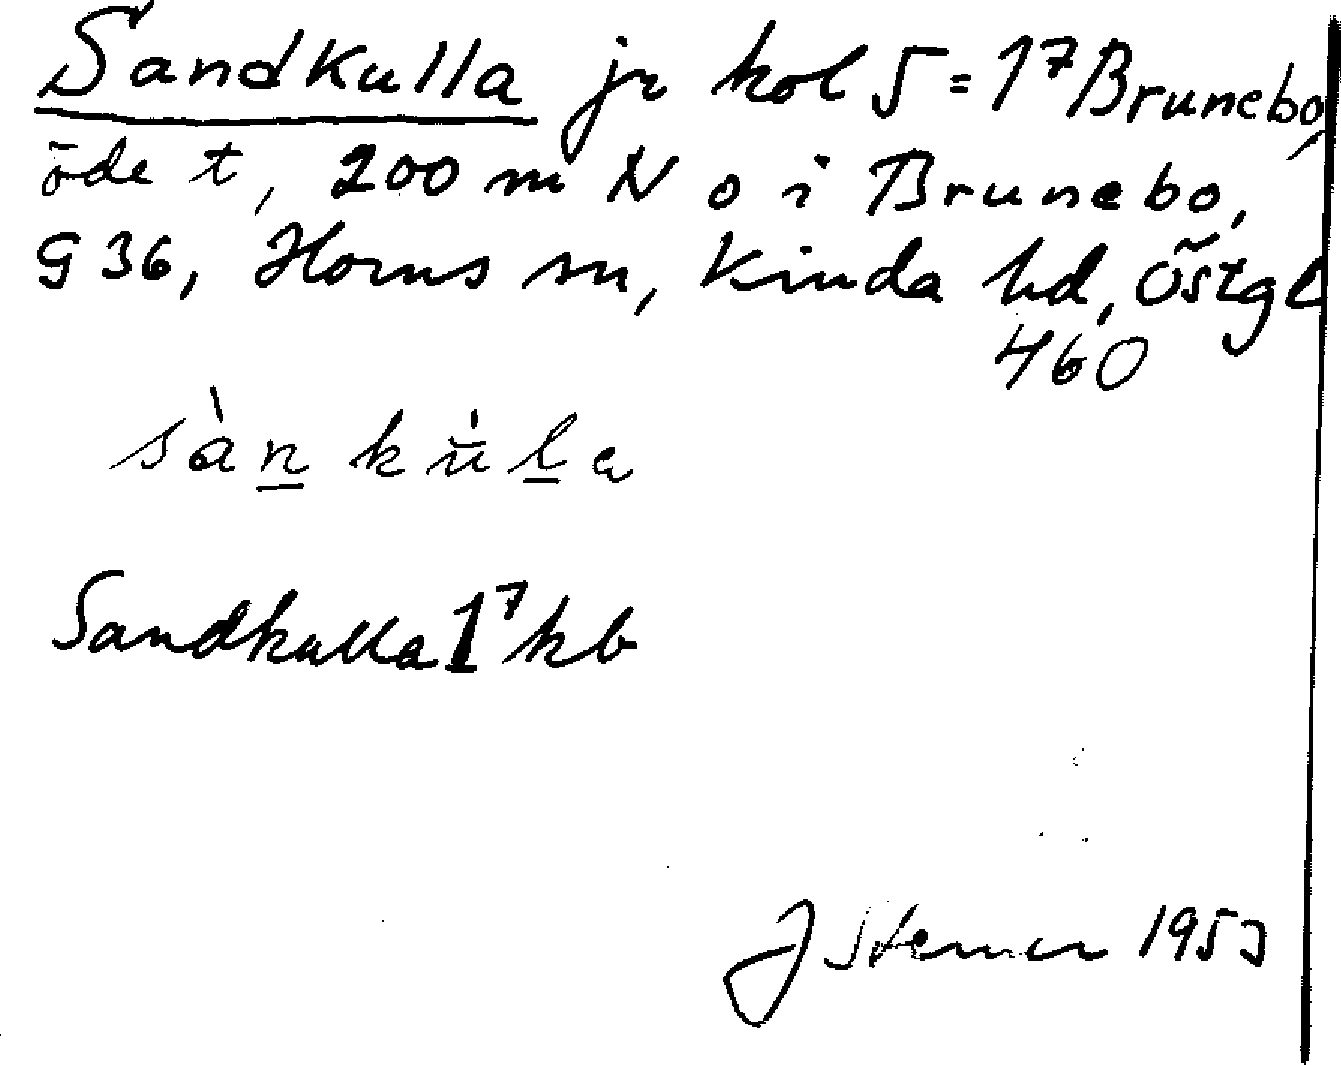 Sandkulla jr kol 5 = 1⁷ Brunebo,
öde t, 200 m N o i Brunebo,
G 36, Horns sn, Kinda hd, Östgl
460
sàn kùla
Sandkulla 1⁷ kb
J Stemer 1953